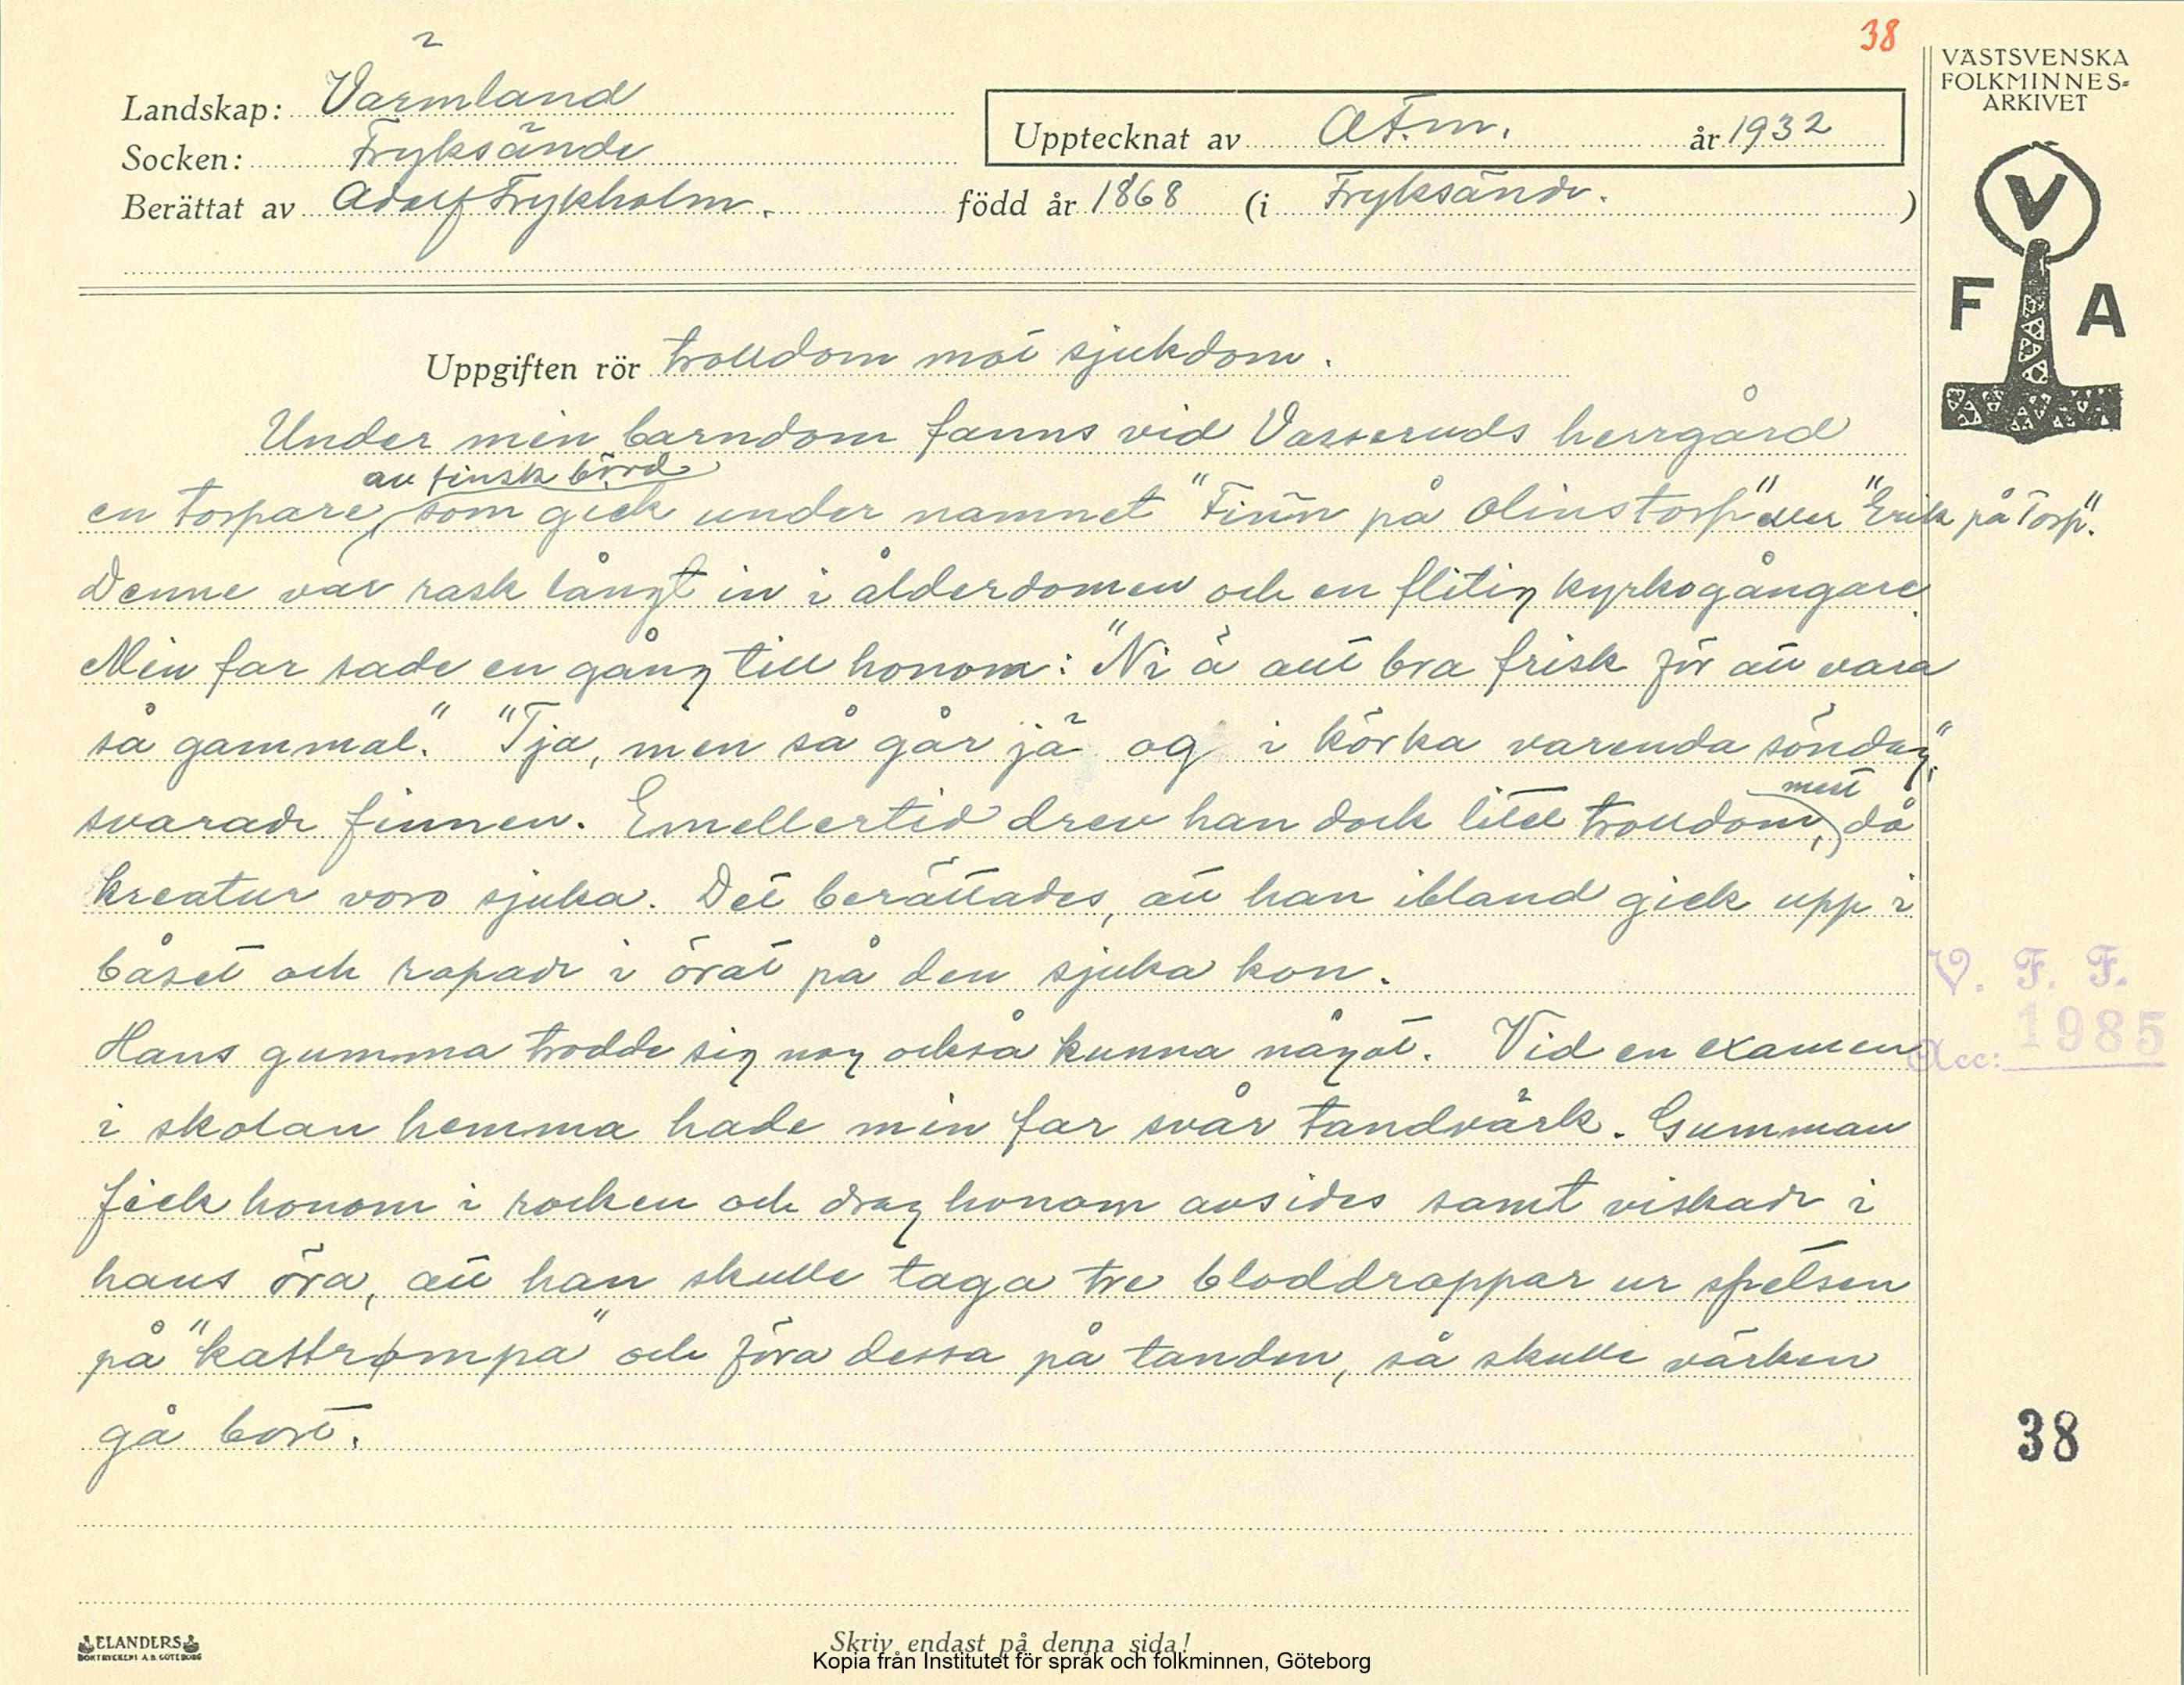 38
VÄSTSVENSKA
FOLKMINNES=
ARKIVET
Landskap: Värmland
Upptecknat av A.F.m. år 1932
Socken: Fryksände
Berättat av Adolf Frykholm. född år 1868 (i Fryksände. )
V
F A
Uppgiften rör trolldom mot sjukdom.
Under min barndom fanns vid Vasseruds herrgård
av finsk börd
en torpare, som gick under namnet "Finn på Olinstorp" eller "Erik på Torp".
Denne var rask långt in i ålderdomen och en flitig kyrkogångare.
Min far sade en gång till honom: "Ni ä allt bra frisk för att vara
så gammal." "Tja, men så går jä og i körka varenda söndag",
mest
svarade finnen. Emellertid drev han dock litet trolldom, då
kreatur voro sjuka. Det berättades, att han ibland gick upp i
båset och ropade i örat på den sjuka kon.
Hans gumma trodde sig nog också kunna något. Vid en examen
i skolan hemma hade min far svår tandvärk. Gumman
fick honom i rocken och drog honom avsides samt viskade i
hans öra, att han skulle taga tre bloddroppar ur spetsen
på "kattrompa" och föra dessa på tanden, så skulle värken
gå bort.
V. F. F.
Acc: 1985
38
ELANDERS
BOKTRYCKERI A.B. GÖTEBORG
Skriv endast på denna sida!
Kopia från Institutet för språk och folkminnen, Göteborg